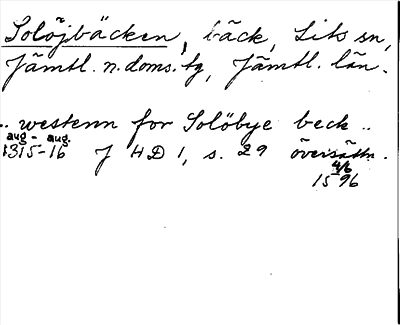 Solöjbäcken, bäck, Lits sn,
Jämtl. n. doms. tg, Jämtl. län.
.. westenn for Solöbye beck ..
aug - aug.
1315-16 J HD 1, s. 29 översättn.
4/6
1596